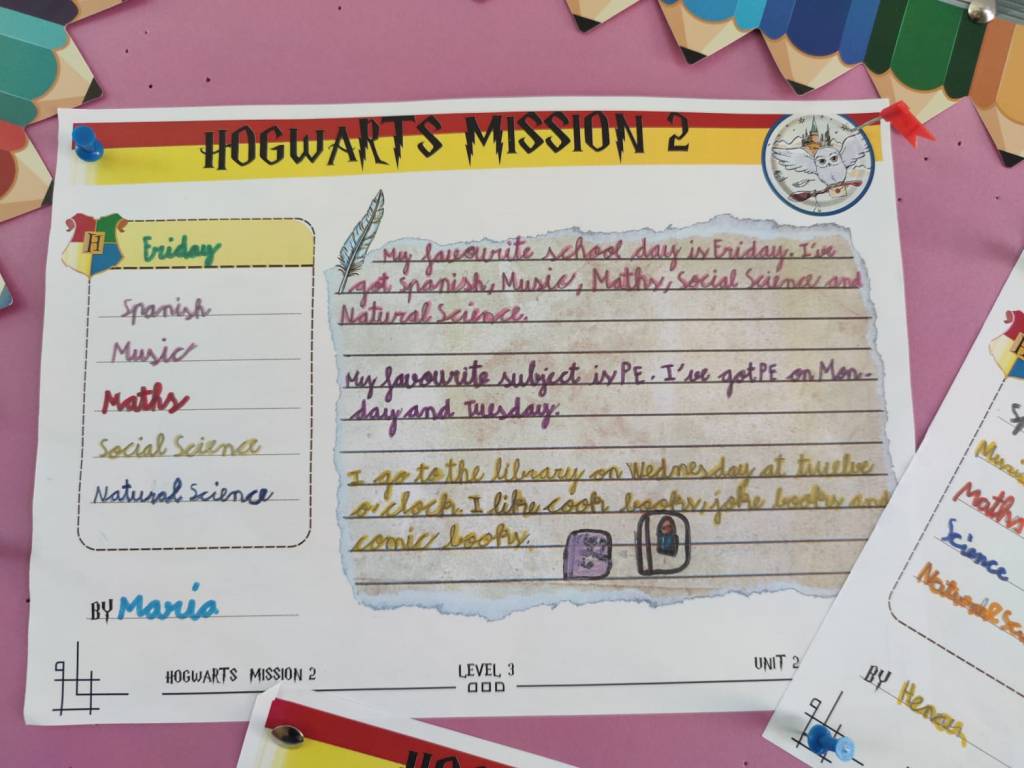 HOGWARTS MISSION 2
H
Friday
Spanish
Music
Maths
Social Science
Natural Science
BY Maria
My favourite school day is Friday. I've
got Spanish, Music, Maths, Social Science and
Natural Science.
My favourite subject is PE. I've got PE on Mon-
day and Tuesday.
I go to the library on Wednesday at twelve
o'clock. I like cook books, joke books and
comic books.
HOGWARTS MISSION 2
LEVEL 3
UNIT 2
Maths
Science
BY